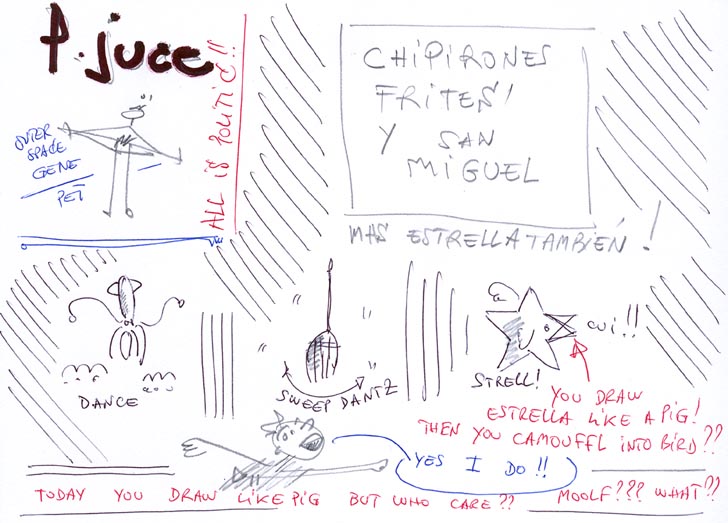 P. juce
ALL is POLITIC!!
OUTER
SPACE
GENE
PET
CHIPIRONES
FRITES!
Y SAN
MIGUEL
MAS ESTRELLA TAMBIEN!
DANCE
SWEEP DANTZ
STRELL!
cui!!
YOU DRAW
ESTRELLA LIKE A PIG!
THEN YOU CAMOUFFL INTO BIRD??
YES I DO!!
TODAY YOU DRAW LIKE PIG BUT WHO CARE?? MOOLF??? WHAT??